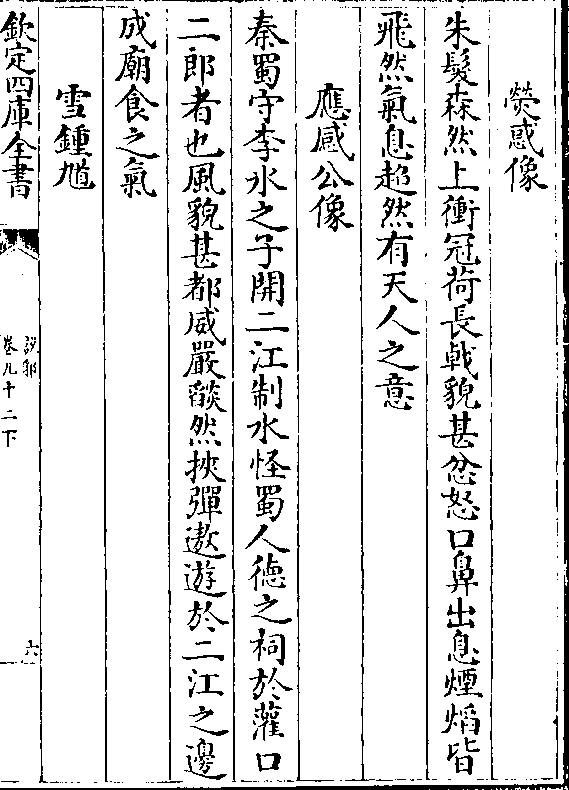 熒惑像
朱髮森然上衝冠荷長戟貌甚忿怒口鼻出息煙熖皆
飛然氣息超然有天人之意
應感公像
秦蜀守李氷之子開二江制水怪蜀人徳之祠於灌口
二郎者也風貌甚都威嚴燄然挾彈遨遊於二江之邊
成廟食之氣
雪鍾馗
欽定四庫全書
說郛
卷九十二下
六